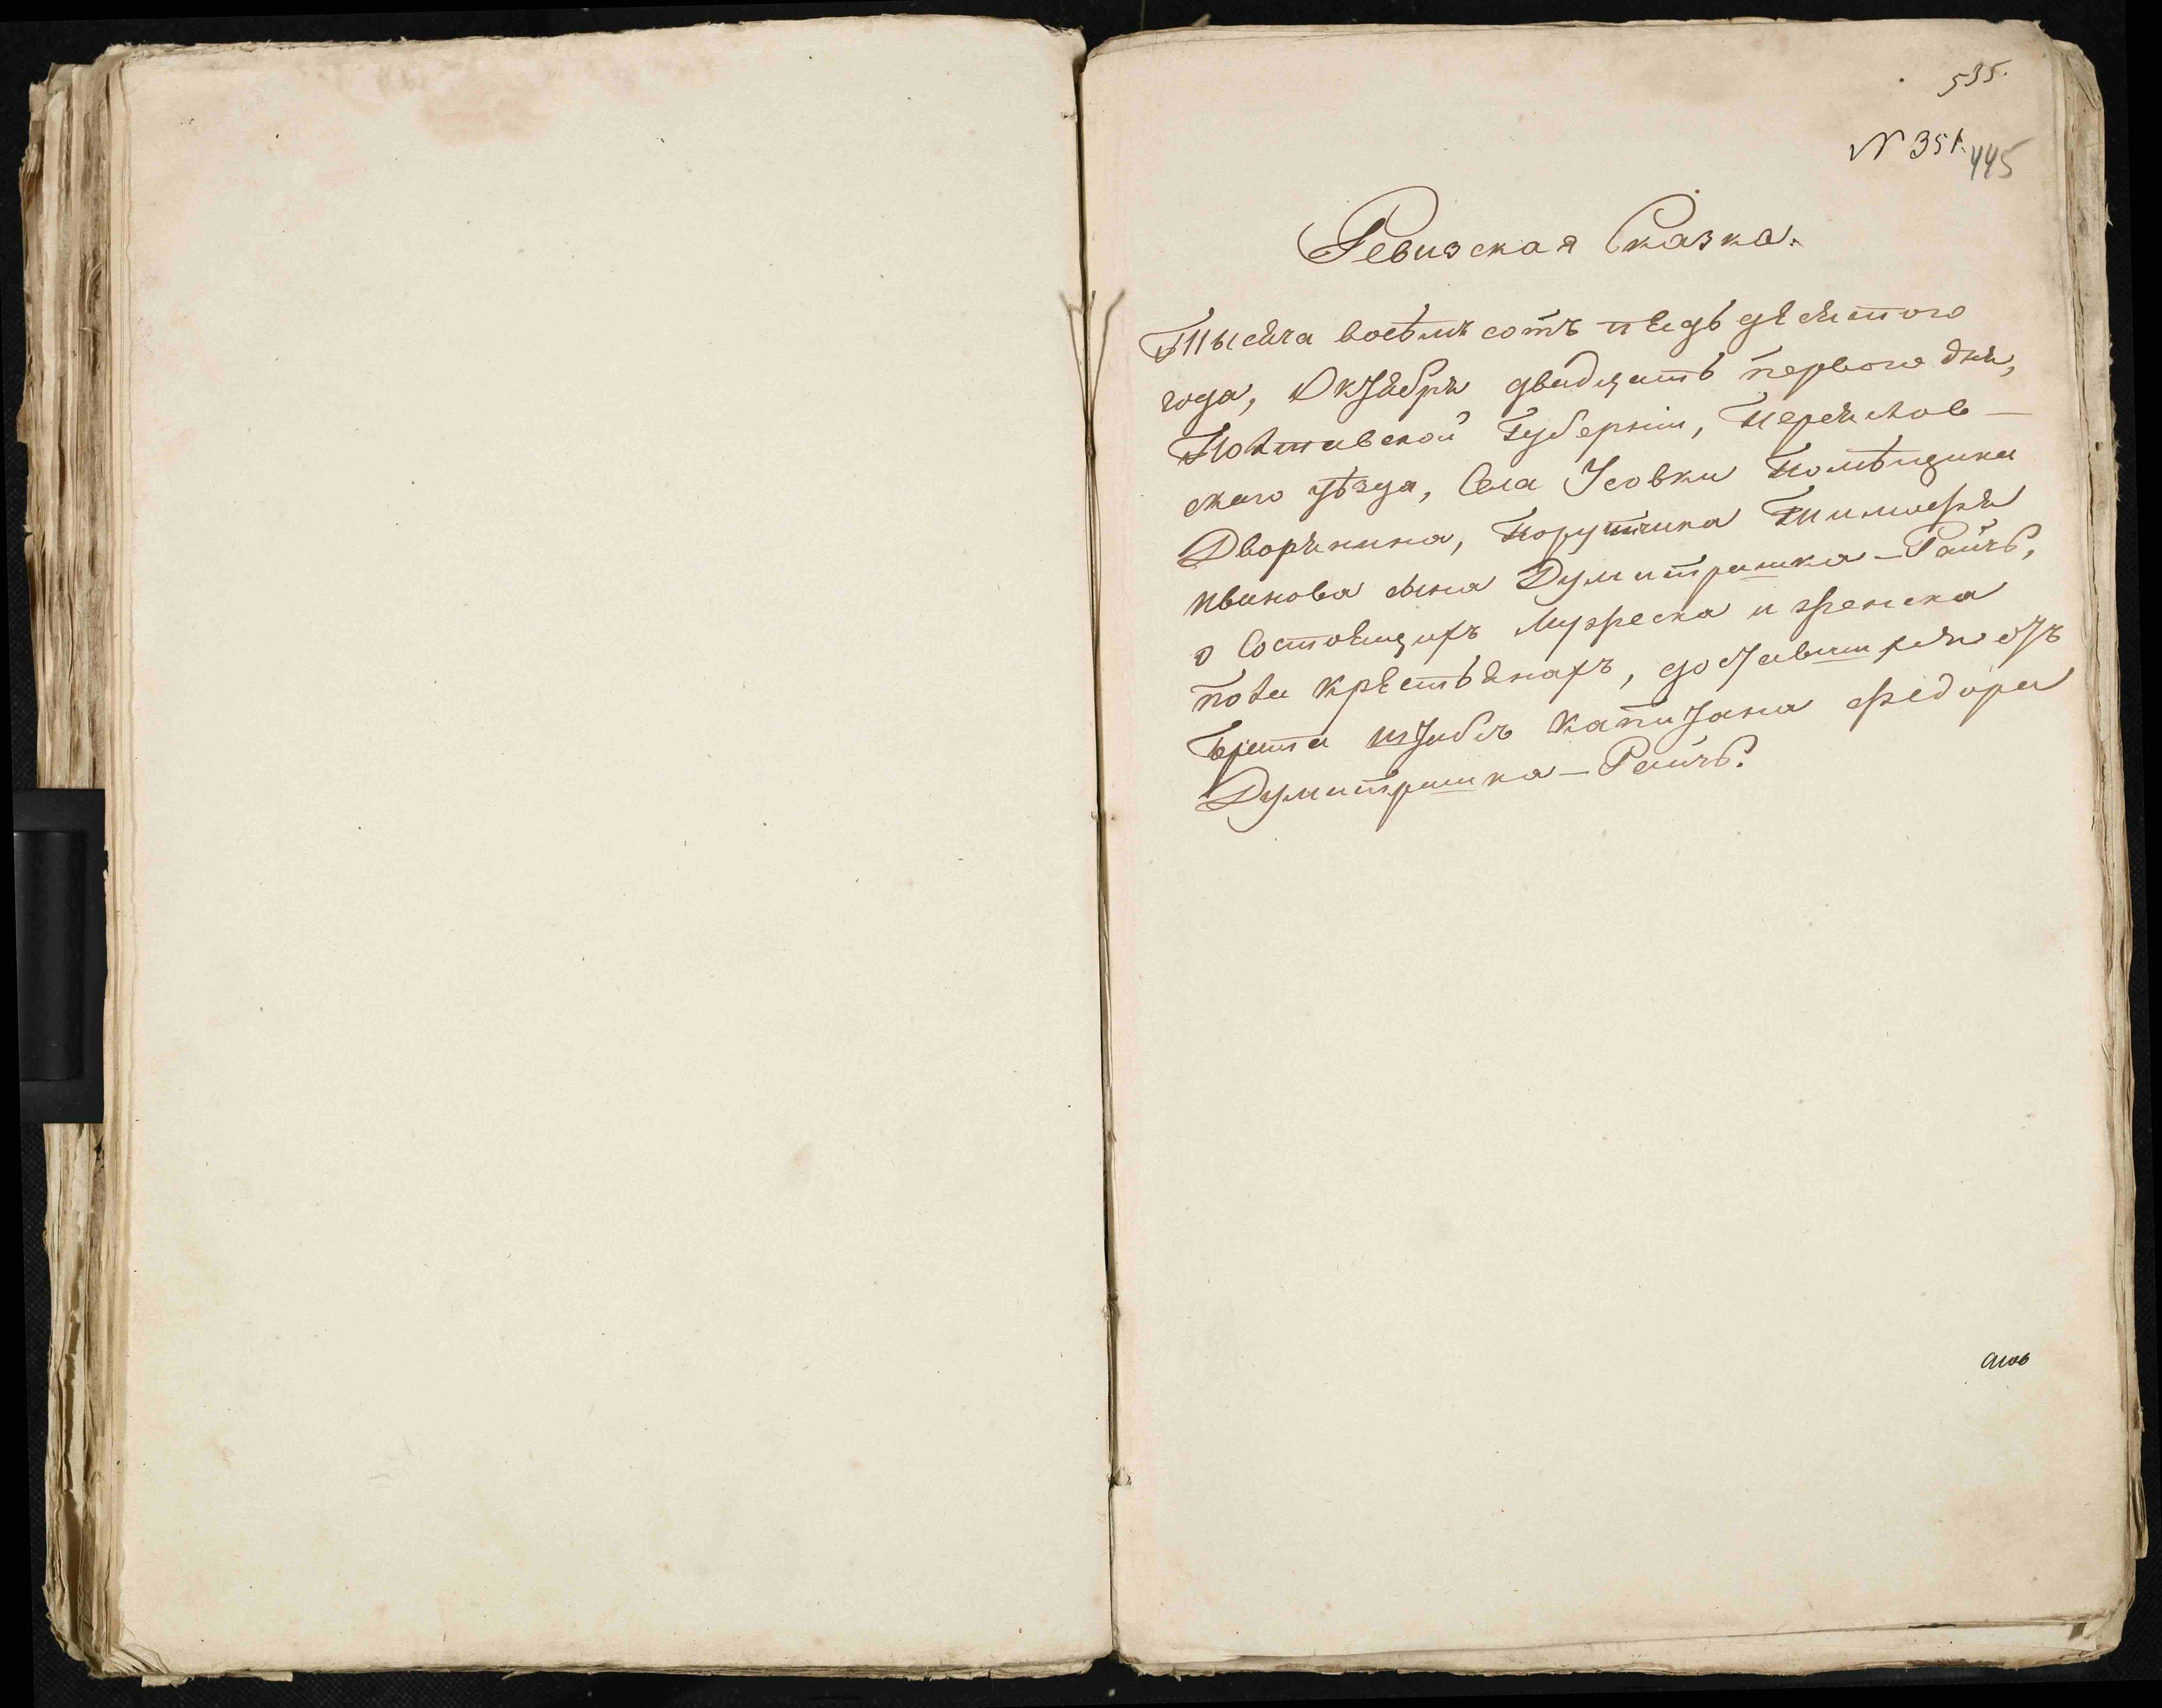 535.
N 351.
445
Ревизская Сказка.
Тысяча восѣмъ сотъ пядь десятого
года, Октября двадцать первого дня,
Полтавской Губерніи, Переяслов-
скаго уѣзда, Села Усовки Помѣщика
Дворянина, Порутчика Тимофея
иванова сына Думитрашка-Раичъ,
о Состоящихъ мужеска и женска
пола крестьянахъ, доставшихся отъ
брата штабсъ капитана Федора
Думитрашка-Раичъ.